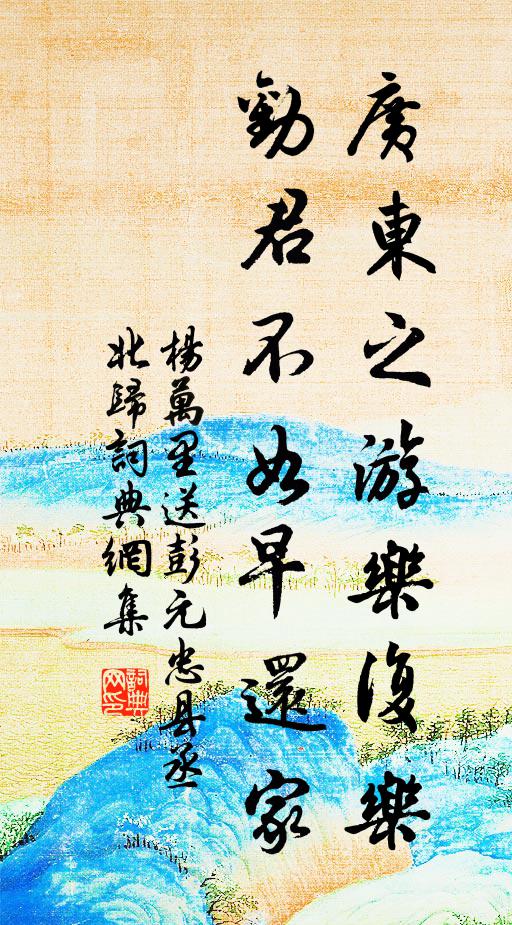 廣東之游樂復樂
勸君不如早還家
楊萬里送彭元忠县丞
北歸詞典網集
詞典
网印